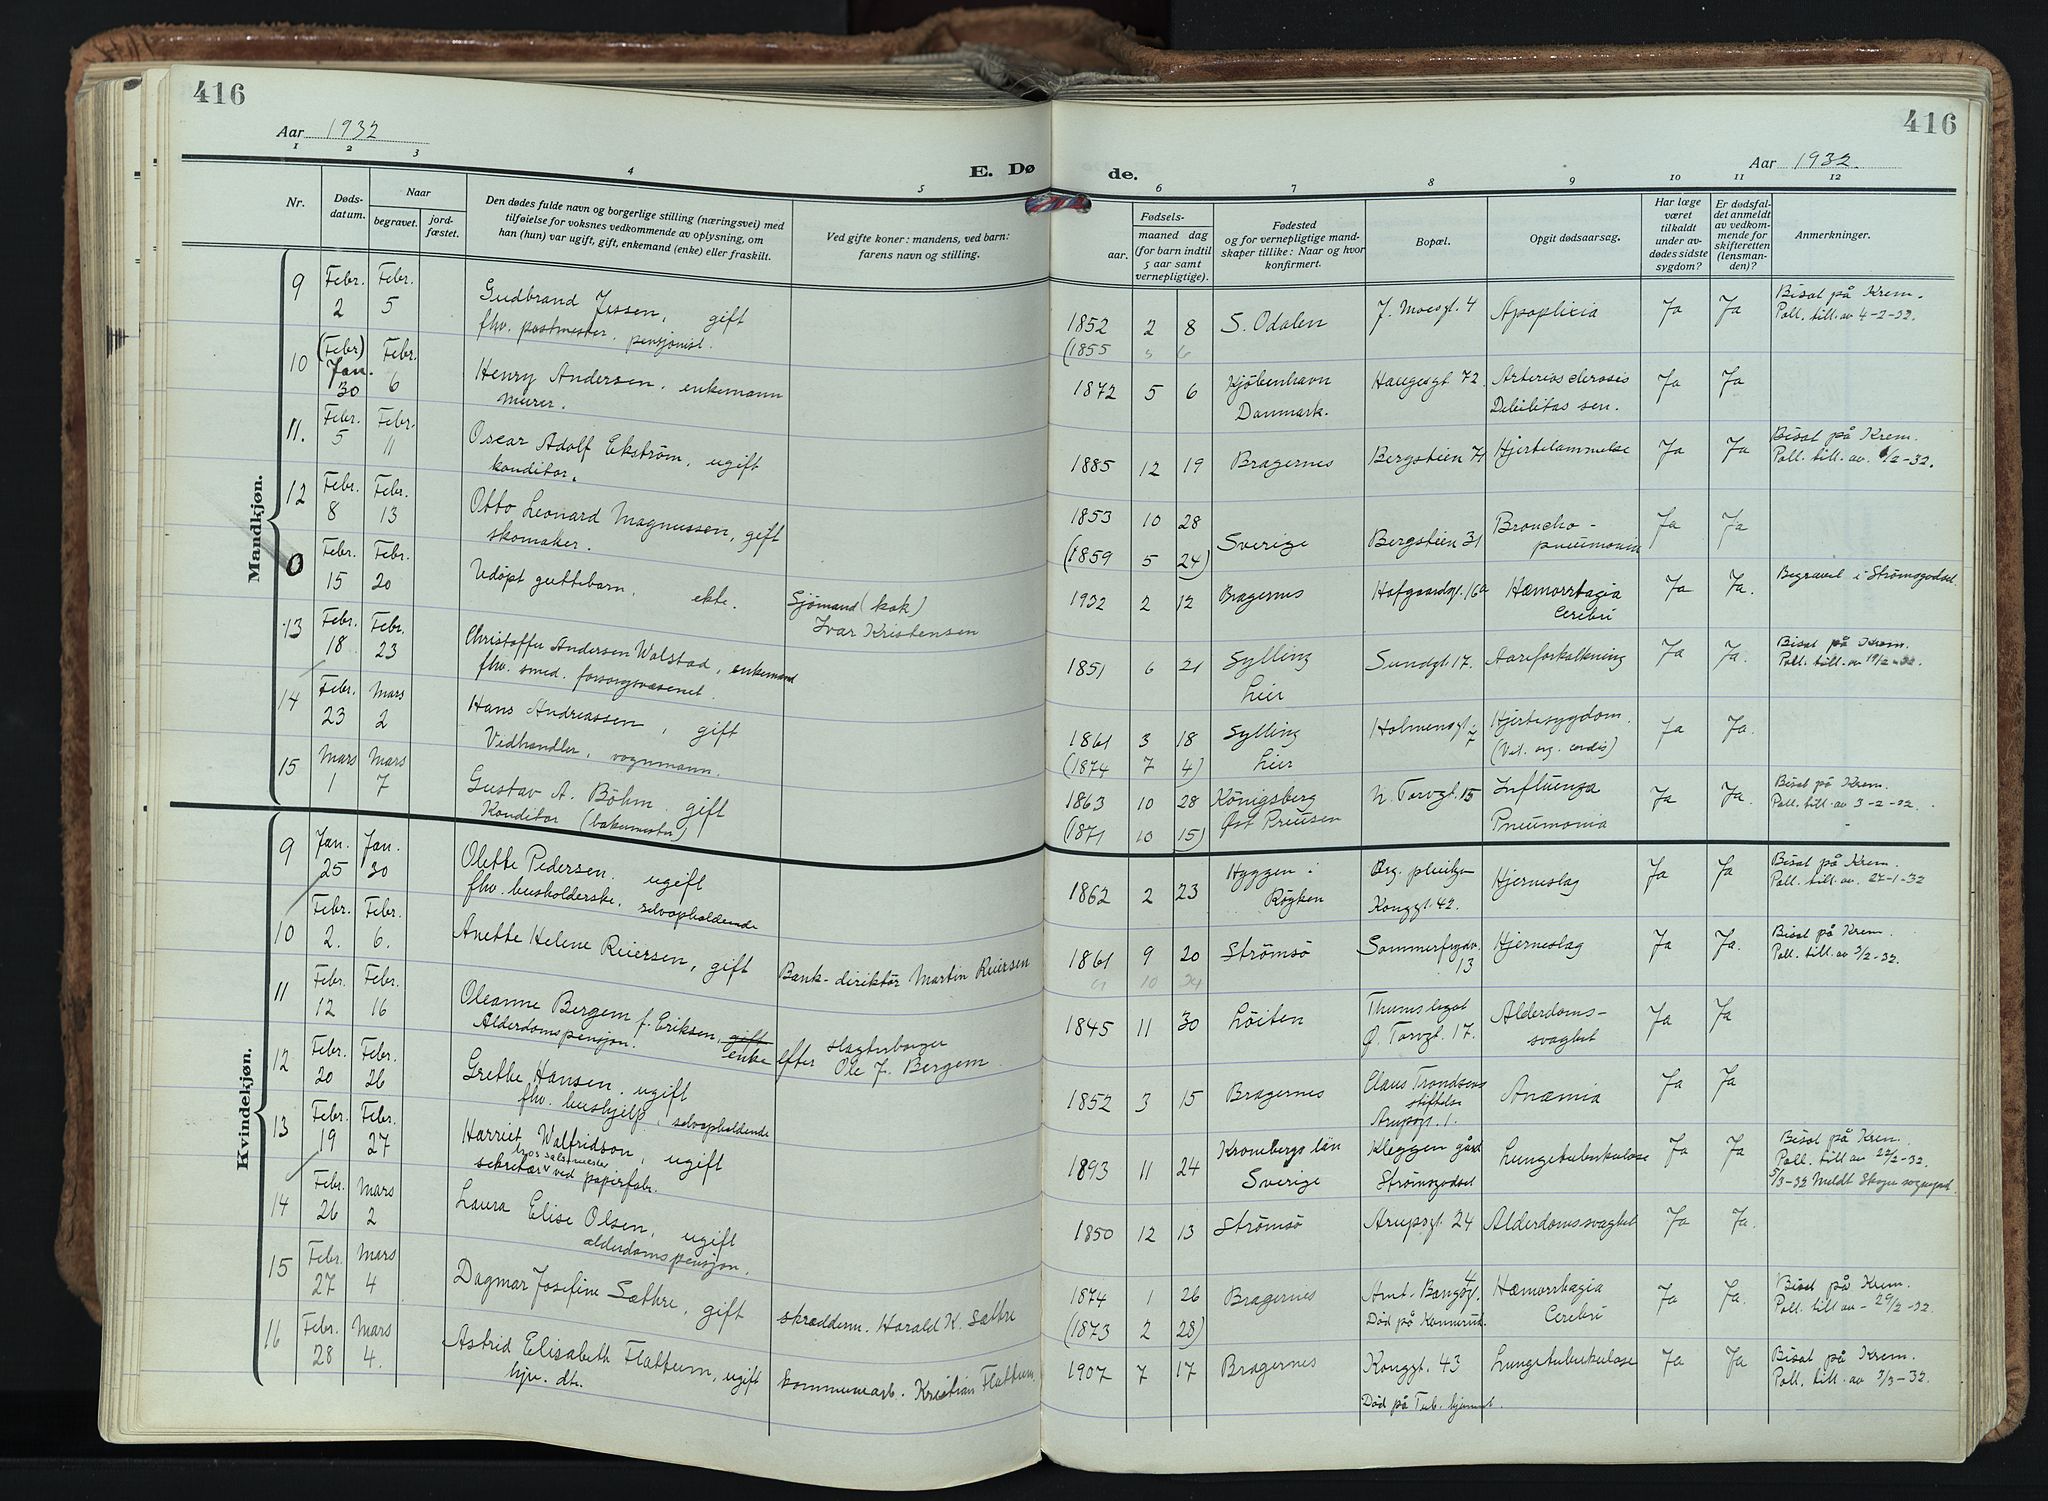 416
Aar 1932
1 2 3 4 5
E. Dø
Nr.
Døds-
datum.
Naar
begravet.
jord-
fæstet.
Den dødes fulde navn og borgerlige stilling (næringsvei) med
tilføielse for voksnes vedkommende av oplysning, om
han (hun) var ugift, gift, enkemand (enke) eller fraskilt.
Ved gifte koner: mandens, ved barn:
farens navn og stilling.
Mandkjøn.
9 Febr. 2 Febr. 5 Gudbrand Jessen, gift
fhv. postmester, pensjonist.
10 (Febr) Jan. 30 Febr. 6 Henry Andersen, enkemann
murer.
11. Febr. 5 Febr. 11 Oscar Adolf Ekström, ugift
konditor.
12 Febr. 8 Febr. 13 Otto Leonard Magnussen, gift
skomaker.
0 Febr. 15 Febr. 20 Udöpt guttebarn, ekte. Sjömand (kok)
Ivar Kristensen
13 Febr. 18 Febr. 23 Christoffer Andersen Walstad, enkemand
fhv. smed. forsorgsvæsenet.
14 Febr. 23 Mars 2 Hans Andreassen, gift
Vedhandler, vognmann.
15 Mars 1 Mars 7 Gustav A. Böhm, gift
Konditor (bakermester)
Kvindekjøn.
9 Jan. 25 Jan. 30 Olette Pedersen, ugift
fhv. husholderske, selvopholdende
10 Febr. 2. Febr. 6. Anette Helene Reiersen, gift Bank-direktör Martin Reiersen
11 Febr. 12 Febr. 16 Oleanne Bergem f. Eriksen, gift
Alderdomspensjon. enke efter slagterborger
Ole J. Bergem.
12 Febr. 20 Febr. 26 Grethe Hansen, ugift
fhv. hushjelp, selvopholdende
13 Febr. 19 Febr. 27 Harriet Walfridson, ugift
sekretær ved papirfabr.
14 Febr. 26 Mars 2 Laura Elise Olsen, ugift
alderdomspensjon.
15 Febr. 27 Mars 4 Dagmar Josefine Sæthre, gift skrædderm. Harald K. Sæthre
16 Febr. 28 Mars 4. Astrid Elisabeth Flattum, ugift kommunearb. Kristian Flattum
hjv. dtr.
416
Aar 1932
de.
6 7 8 9 10 11 12
aar.
Fødsels-
maaned dag
(for barn indtil
5 aar samt
vernepligtige).
Fødested
og for vernepligtige mand-
skaper tillike: Naar og hvor
konfirmert.
Bopæl.
Opgit dødsaarsag.
Har læge
været
tilkaldt
under av-
dødes sidste
sygdom?
Er dødsfal-
det anmeldt
av vedkom-
mende for
skifteretten
(lensman-
den)?
Anmerkninger.
1852 2 8 S. Odalen J. Moesgt. 4 Apoplicia Ja Ja Bisat på Krem.
Poll. till. av 4-2-32.
(1855 5 6
1872 5 6 Kjöbenhavn Haugesgt 72. Arteriosclerosis Ja Ja
Danmark. Debilitas sen.
1885 12 19 Bragernes Bergstien 71 Hjertelammelse Ja Ja Bisat på Krem.
Poll. till. av 6/2-32.
1853 10 28 Sverige Bergstien 31 Broncho- Ja Ja
(1859 5 24) pneumonia
1932 2 12 Bragernes Hofgaardsgt. 16a Hæmorrhagia Ja Ja. Begravet i Strömsgodset.
Cerebri
1851 6 21 Sylling Sundgt 17. Aareforkalkning Ja Ja. Bisat på Krem.
Lier Poll. till. av 19/2-32
1861 3 18 Sylling Holmensgt. 7 Hjertesygdom. Ja Ja.
(1874 7 4) Lier (Vit. org. cordis)
1863 10 28 Königsberg N. Torvgt. 15 Influenza Ja Ja. Bisat på Krem.
(1871 10 15) Öst Preusen Pneumonia Poll. till. av 3-2-32.
1862 2 23 Hyggen i Hjerneslag Ja Ja Bisat på Krem.
Röyken Kongsgt. 42. Poll. till. av. 27-1-32
1861 9 20 Strömsö Sommerfrydv. 13 Hjerneslag Ja Ja. Bisat på Krem.
10 24 Poll. till. av 3/2-32.
1845 11 30 Löiten Thumslegat Alderdoms- Ja Ja
Ö. Torvgt. 17. svaghet
1852 3 15 Bragernes Claus Trondsens Anæmia Ja Ja
stiftelse
Arupsgt. 1.
1893 11 24 Kronobergs län Kleggen gård Lungetuberkulose Ja Ja Bisat på Krem.
Sverige Strömsgodset Poll. till av 22/2-32.
5/3-32 Meldt Skoger sogneprest
1850 12 13 Strömsö Arupsgt. 24 Alderdomssvaghet Ja Ja.
1874 1 26 Bragernes Amt. Bangsgt. 4 Hæmorrhagia Ja Ja. Bisat på Krem.
(1873 2 28) Död på Konnerud. Cerebri Poll. till av - 29/2-32.
1907 7 17 Bragernes Kongsgt. 43 Lungetuberkulose Ja Ja Bisat på Krem.
Död på Tub. hjemmet. Poll. till. av 3/3-32.